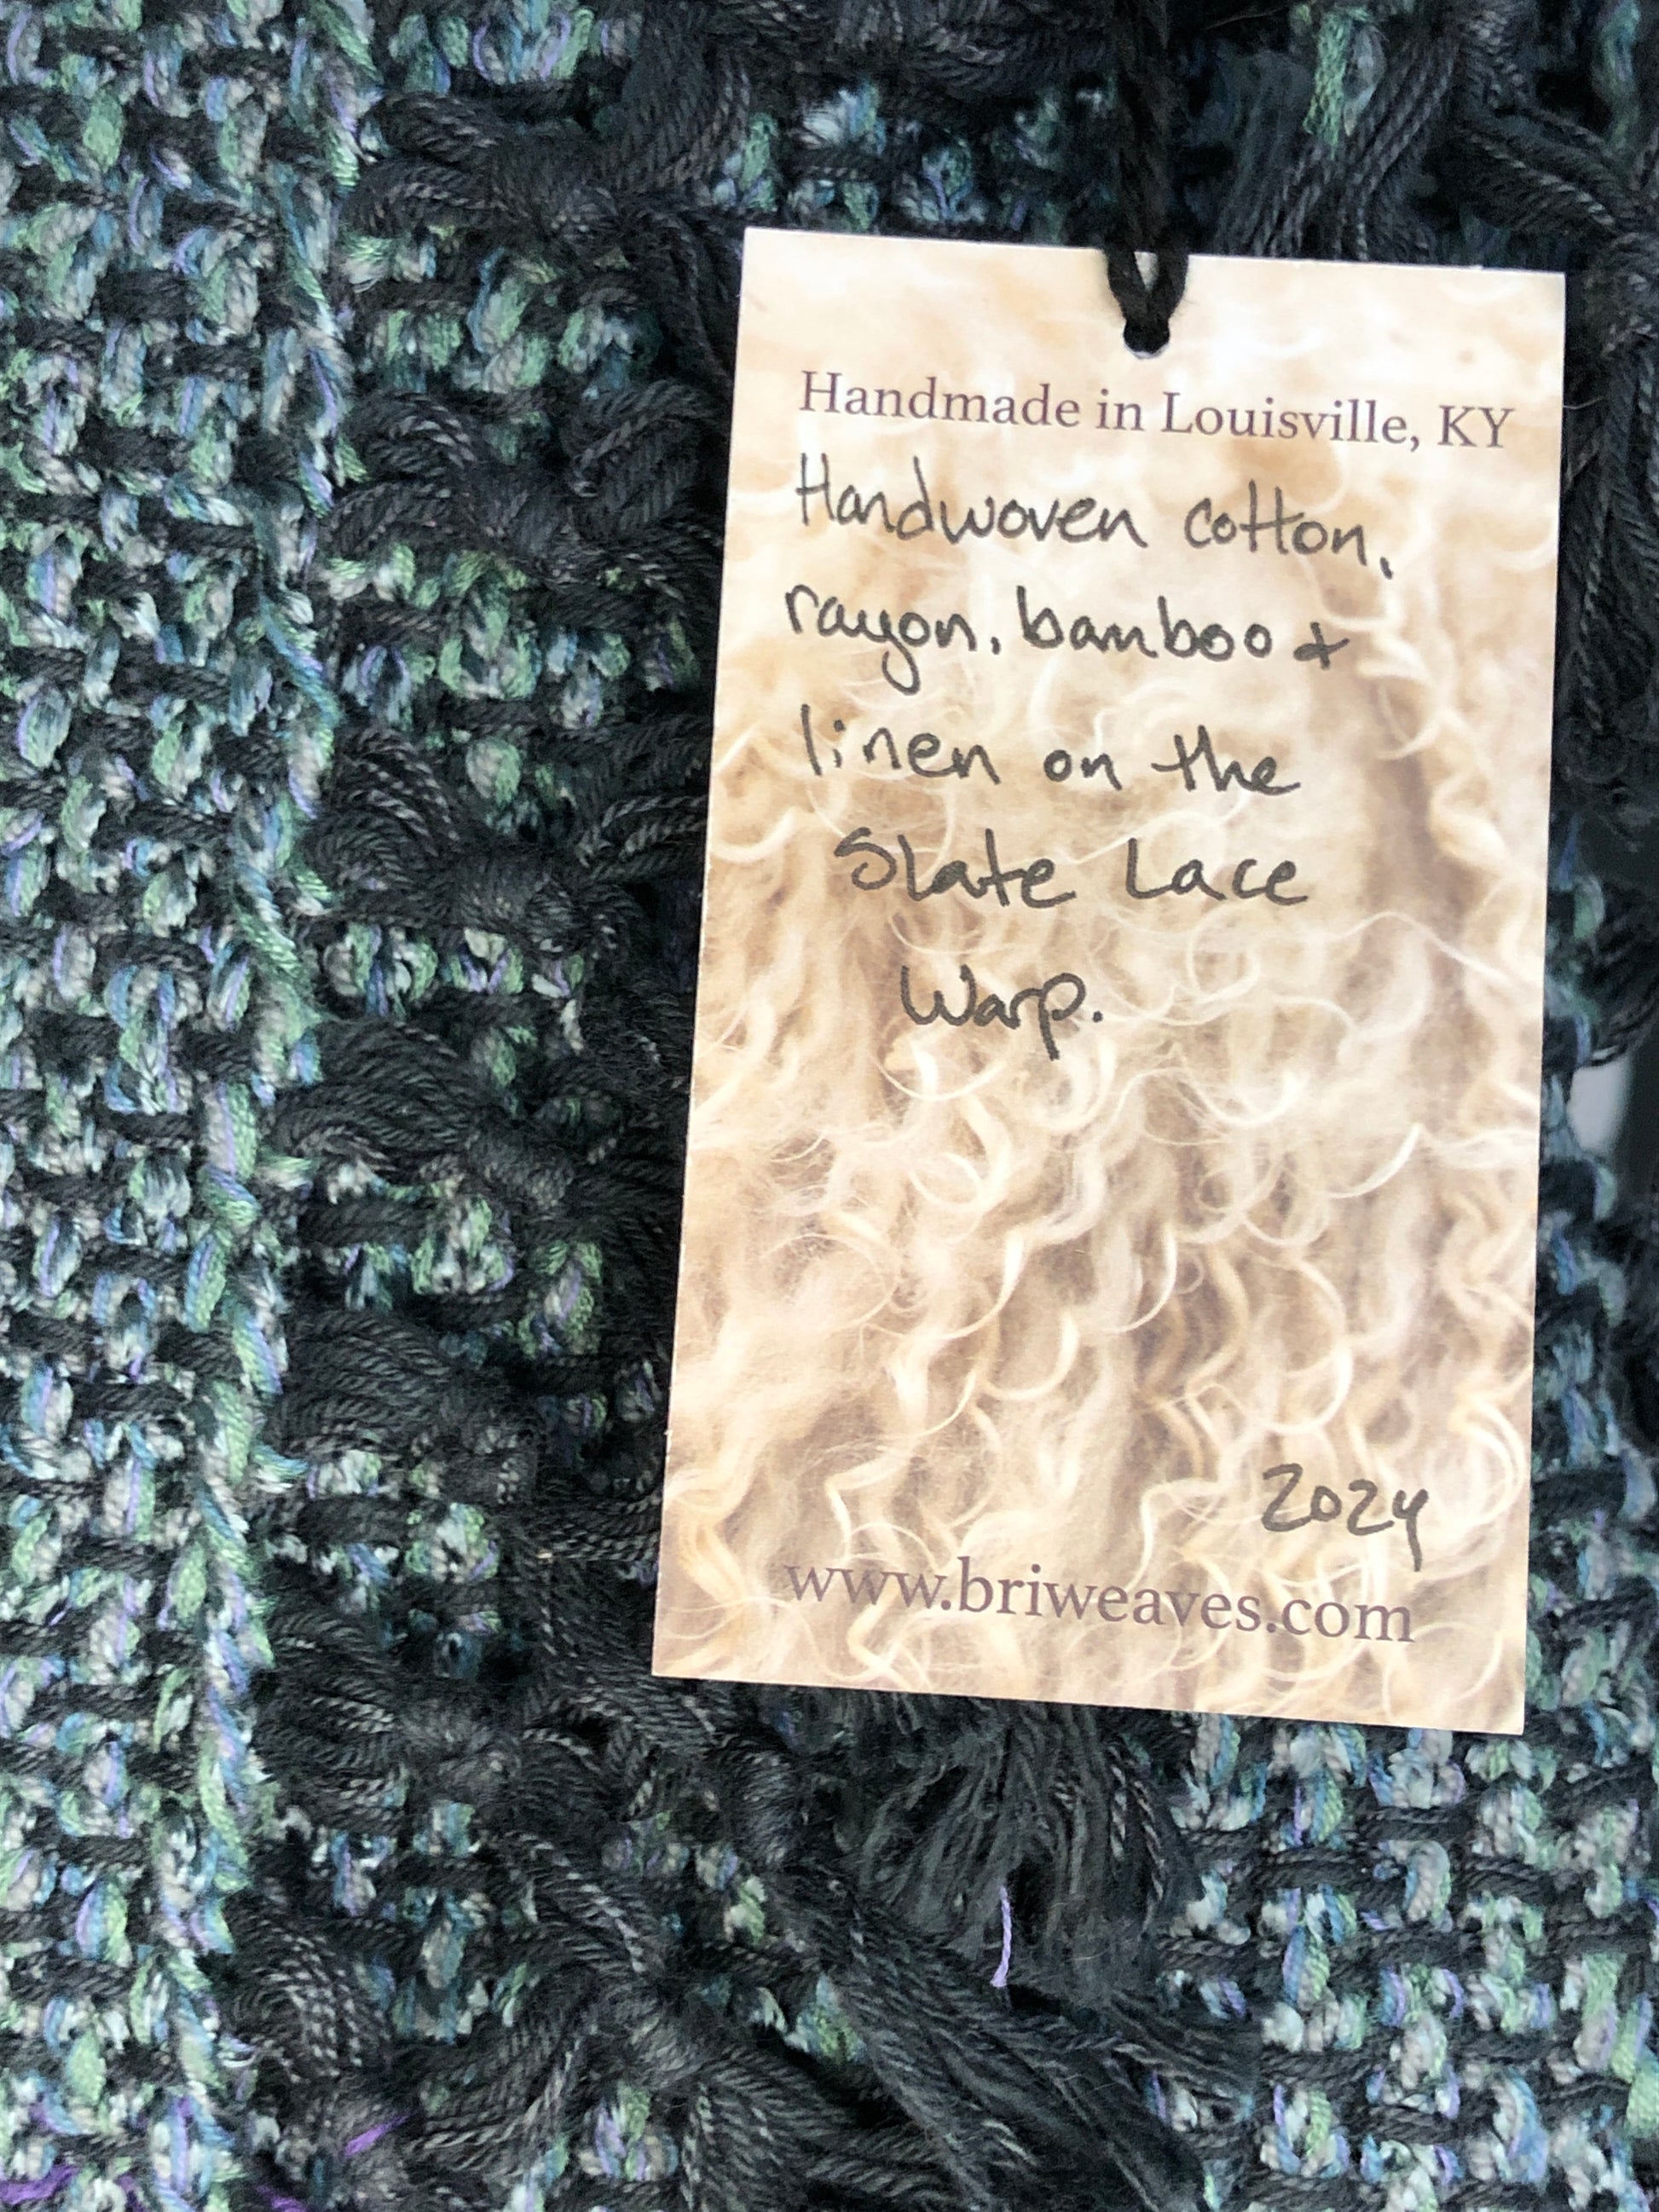 Handmade in Louisville, KY
Handwoven cotton,
rayon, bamboo +
linen on the
Slate Lace
Warp.
2024
www.briweaves.com